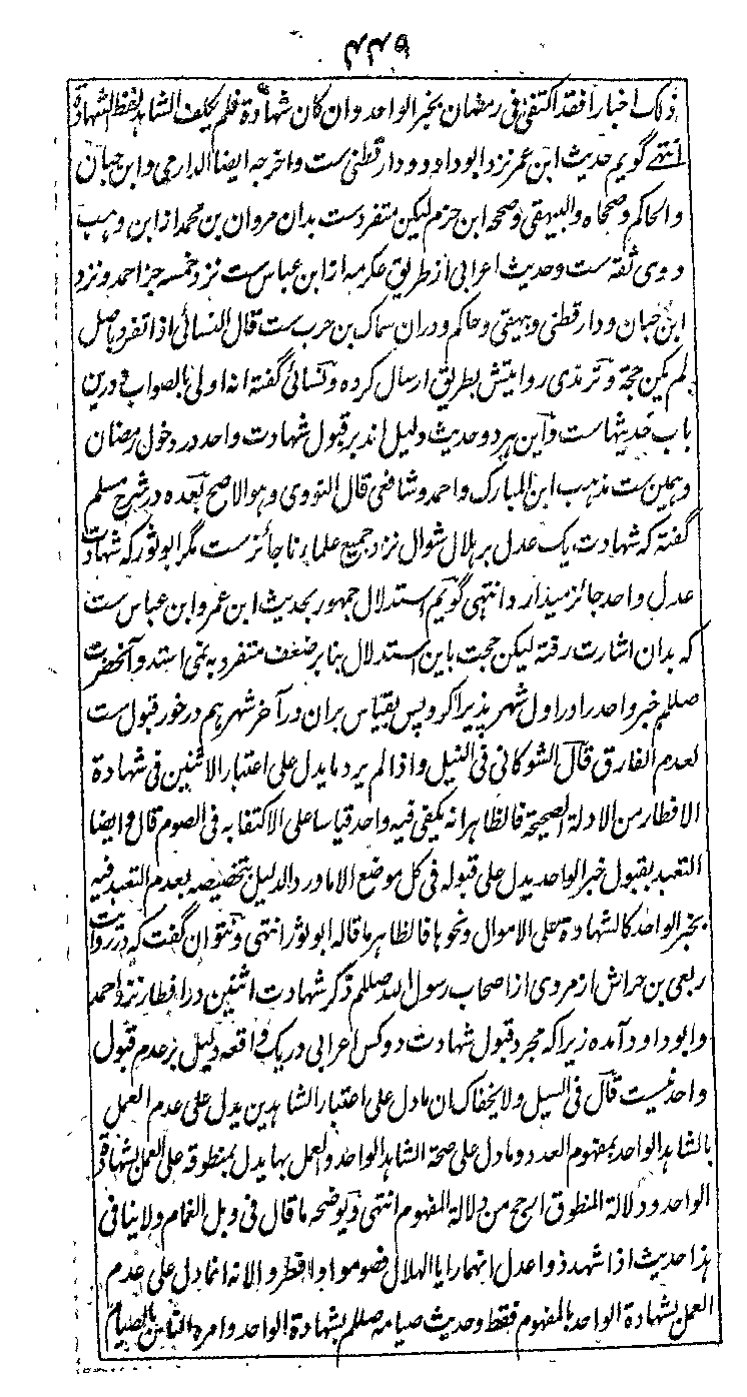 ذلک اخبارا فقد اکتفی فی رمضان بخبر الواحد وان کان شهادة فلم یکلف الشاهد لفظ الشهادة
انتهی گویم حدیث ابن عمر نزد ابو داود و دارقطنی ست واخرجه ایضا الدارمی وابن حبان
والحاکم وصححاه والبیهقی وصححه ابن حزم لیکن متفردست بدان مروان بن محمد از ابن وهب
و وی ثقه ست وحدیث اعرابی از طریق عکرمه از ابن عباس ست نزد خمسه جز احمد ونزد
ابن حبان ودارقطنی وبیهقی وحاکم ودران سماک بن حرب ست قال النسائی اذا تفرد باصل
لم یکن حجة وترمذی روایتش بطریق ارسال کرده ونسائی گفته انه اولی بالصواب ودرین
باب حدیثهاست واین هر دو حدیث دلیل اند بر قبول شهادت واحد در دخول رمضان
وهمین ست مذهب ابن المبارک واحمد وشافعی قال النووی وهو الاصح بعده در شرح مسلم
گفته که شهادت یک عدل بر هلال شوال نزد جمیع علما ناجائز ست مگر ابو ثور که شهادت
عدل واحد جائز میدارد انتهی گویم استدلال جمهور بحدیث ابن عمر وابن عباس ست
که بدان اشارت رفته لیکن حجت باین استدلال بنا بر ضعف متفرد به نمی استد وآنحضرت
صللم خبر واحد را در اول شهر پذیرا کرد پس بقیاس بران در آخر شهر هم در خور قبول ست
لعدم الفارق قال الشوکانی فی النیل واذا لم یرد ما یدل علی اعتبار الاثنین فی شهادة
الافطار من الادلة الصحیحة فالظاهر انه یکفی فیه واحد قیاسا علی الاکتفا به فی الصوم قال وایضا
التعبد بقبول خبر الواحد یدل علی قبوله فی کل موضع الا ما ورد الدلیل بتخصیصه بعدم التعبد فیه
بخبر الواحد کالشهادة علی الاموال ونحوها فالظاهر ما قاله ابو ثور انتهی ونتوان گفت که در روایت
ربعی بن حراش از مردی از اصحاب رسول الله صللم ذکر شهادت اثنین در افطار نزد احمد
وابو داود آمده زیرا که مجرد قبول شهادت دو کس اعرابی در یک واقعه دلیل بر عدم قبول
واحد نیست قال فی السیل ولا یخفاک ان ما دل علی اعتبار الشاهدین یدل علی عدم العمل
بالشاهد الواحد بمفهوم العدد وما دل علی صحة الشاهد الواحد والعمل بها یدل بمنطوقه علی العمل بشهادة
الواحد ودلالة المنطوق ارجح من دلالة المفهوم انتهی ویوضحه ما قال فی وبل الغمام ولا ینافی
هذا حدیث اذا شهد ذوا عدل انهما رایا الهلال فصوموا وافطروا لانه انما دل علی عدم
العمل بشهادة الواحد بالمفهوم فقط وحدیث صیامه صللم بشهادة الواحد وامره الناس بالصیام